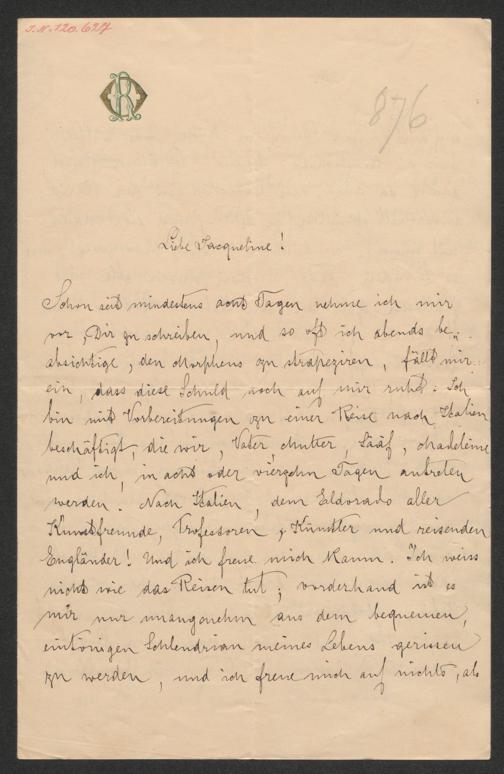 J.N. 120.627
876
Liebe Jacqueline!
Schon seit mindestens acht Tagen nehme ich mir
vor, Dir zu schreiben, und so oft ich abends be-
absichtige, den Morpheus zu strapeziren, fällt mir
ein, dass diese Schuld noch auf mir ruht. Ich
bin mit Vorbereitungen zu einer Reise nach Italien
beschäftigt, die wir, Vater, Mutter, Madeleine
und ich, in acht oder vierzehn Tagen antreten
werden. Nach Italien, dem Eldorado aller
Kunstfreunde, Professoren, Künstler und reisenden
Engländer! Und ich freue mich kaum. Ich weiss
nicht wie das Reisen tut; vorderhand ist es
mir nur unangenehm aus dem bequemen,
eintönigen Schlendrian meines Lebens gerissen
zu werden, und ich freue mich auf nichts, als